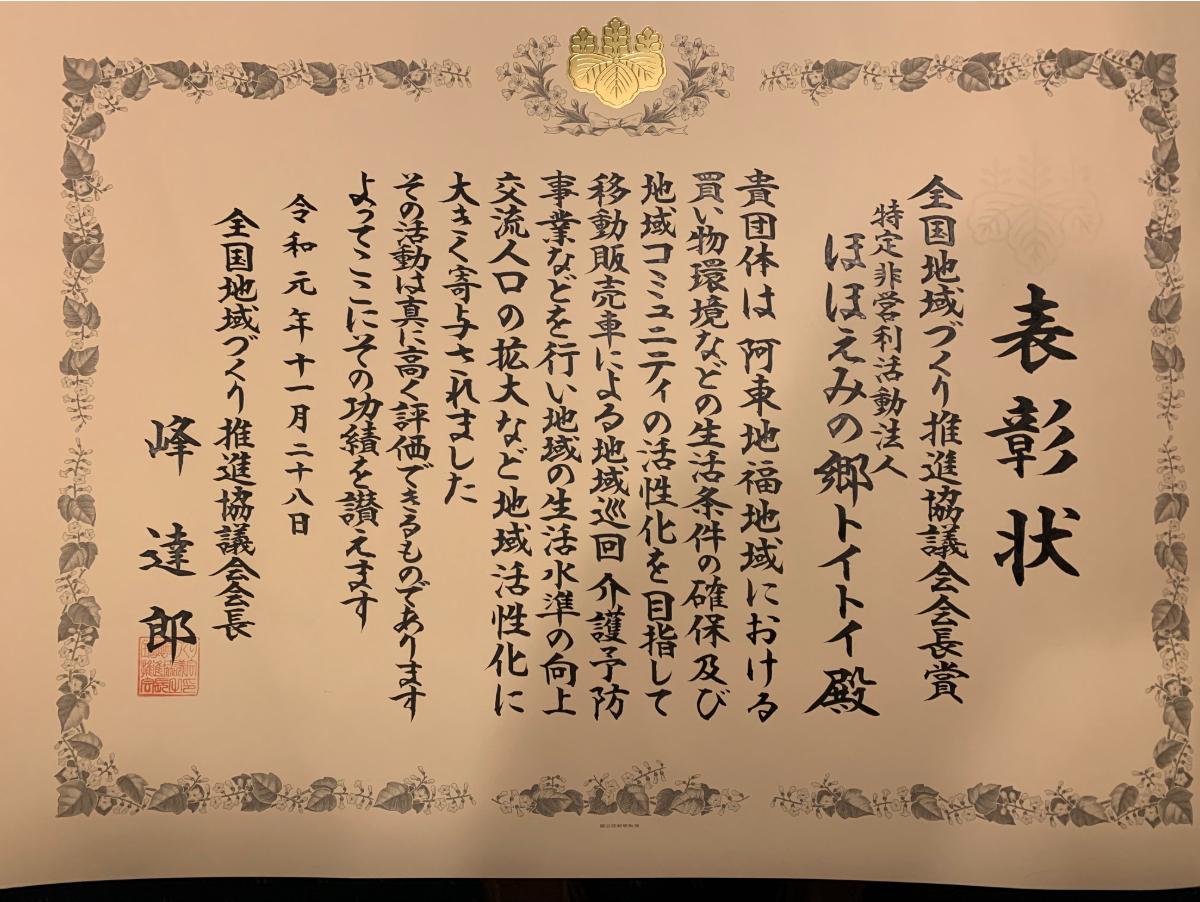 表彰状
全国地域づくり推進協議会会長賞
特定非営利活動法人
ほほえみの郷トイトイ殿
貴団体は阿東地福地域における
買い物環境などの生活条件の確保及び
地域コミュニティの活性化を目指して
移動販売車による地域巡回介護予防
事業などを行い地域の生活水準の向上
交流人口の拡大など地域活性化に
大きく寄与されました
その活動は真に高く評価できるものであります
よってここにその功績を讃えます
令和元年十一月二十八日
全国地域づくり推進協議会会長
峰達郎